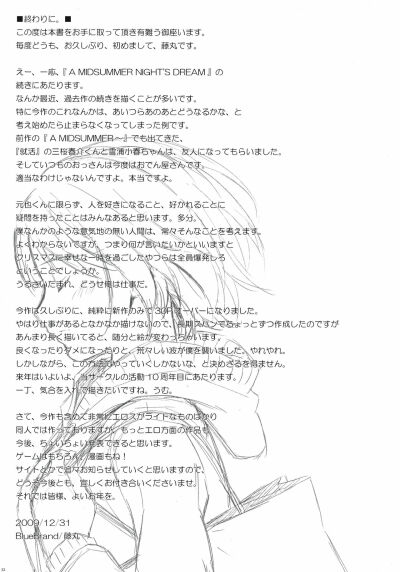 ■終わりに。■
この度は本書をお手に取って頂き有難う御座います。
毎度どうも、お久しぶり、初めまして、藤丸です。
えー、一応、『A MIDSUMMER NIGHT'S DREAM』の
続きにあたります。
なんか最近、過去作の続きを描くことが多いです。
特に今作のこれなんかは、あいつらあのあとどうなるかな、と
考え始めたら止まらなくなってしまった例です。
前作の『A MIDSUMMER～』でも出てきた、
『就活』の三桜春介くんと雪浦小春ちゃんは、友人になってもらいました。
そしていつものおっさんは今度はおでん屋さんです。
適当なわけじゃないんですよ。本当ですよ。
元也くんに限らず、人を好きになること、好かれることに
疑問を持ったことはみんなあると思います。多分。
僕なんかのような意気地の無い人間は、常々そんなことを考えます。
よくわからないですが、つまり何が言いたいかといいますと
クリスマスに幸せな一時を過ごしたやつらは全員爆発しろ
ということでしょうか。
うるさいだまれ、どうせ俺は仕事だ。
今作は久しぶりに、純粋に新作のみで30Pオーバーになりました。
やはり仕事があるとなかなか描けないので、長期スパンでちょっとずつ作成したのですが
あんまり長く描いてると、随分と絵が変わっちゃいます。
良くなったりダメになったりと、荒々しい波が僕を襲いました。やれやれ。
しかしながら、この方法でやっていくしかないな、と決めざるを得ません。
来年はいよいよ、当サークルの活動10周年目にあたります。
一丁、気合を入れて描きたいですね。うむ。
さて、今作も含めて非常にエロスがライトなものばかり
同人では作っておりますが、もっとエロ方面の作品も
今後、ちょいちょい発表できると思います。
ゲームはもちろん、漫画もね！
サイトとかで追々お知らせしていくと思いますので、
どうぞ今後とも、宜しくお付き合いくださいませ。
それでは皆様、よいお年を。
2009/12/31
BlueBrand/藤丸